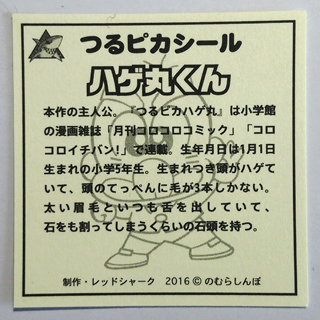 つるピカシール
ハゲ丸くん
本作の主人公。『つるピカハゲ丸』は小学館
の漫画雑誌「月刊コロコロコミック」「コロ
コロイチバン!」で連載。生年月日は1月1日
生まれの小学5年生。生まれつき頭がハゲて
いて、頭のてっぺんに毛が3本しかない。
太い眉毛といつも舌を出していて、
石をも割ってしまうくらいの石頭を持つ。
制作・レッドシャーク 2016 © のむらしんぼ